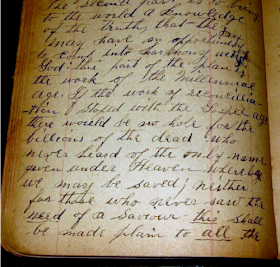 The second part is to bring
to the world a knowledge
of the truth, that they
may have an opportunity
to come into harmony with
God. This part of the plan is
the work of the Millennial
age. If the work of reconcilia-
-tion stoped with the Gospel age
there would be no hope for the
billions of the dead who
never heard of the only name
given under Heaven whereby
we may be saved; neither
for those who never saw the
need of a Saviour this shall
be made plain to all the